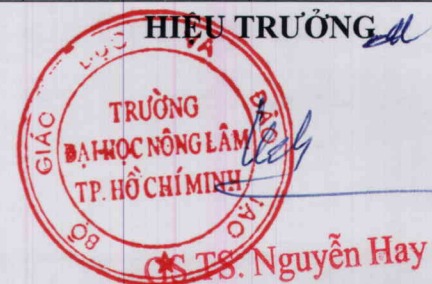 HIỆU TRƯỞNG
BỘ GIÁO DỤC VÀ ĐÀO TẠO
TRƯỜNG
ĐẠI HỌC NÔNG LÂM
TP. HỒ CHÍ MINH
GS.TS. Nguyễn Hay